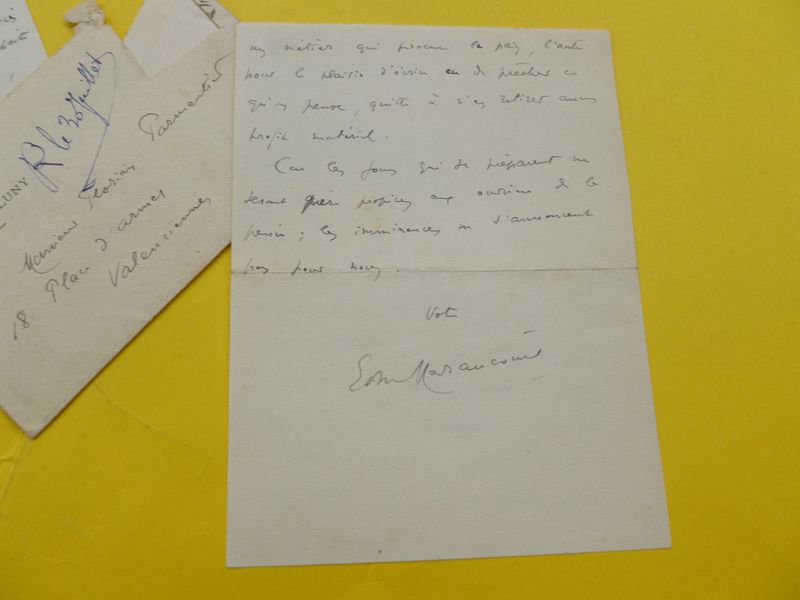 un métier qui procure le pain, l'autre
pour le plaisir d'écrire et de prêcher ce
qu'on pense, quitte à n'en retirer aucun
profit matériel.
Car les jours qui se préparent ne
seront guère propices aux ouvriers de la
pensée ; les imminences ne s'annoncent
pas pour nous.
Votre
Edm Haraucourt
LUNY
R le 30 juillet
Monsieur Florian Parmentier
18 Place d'armes
Valenciennes